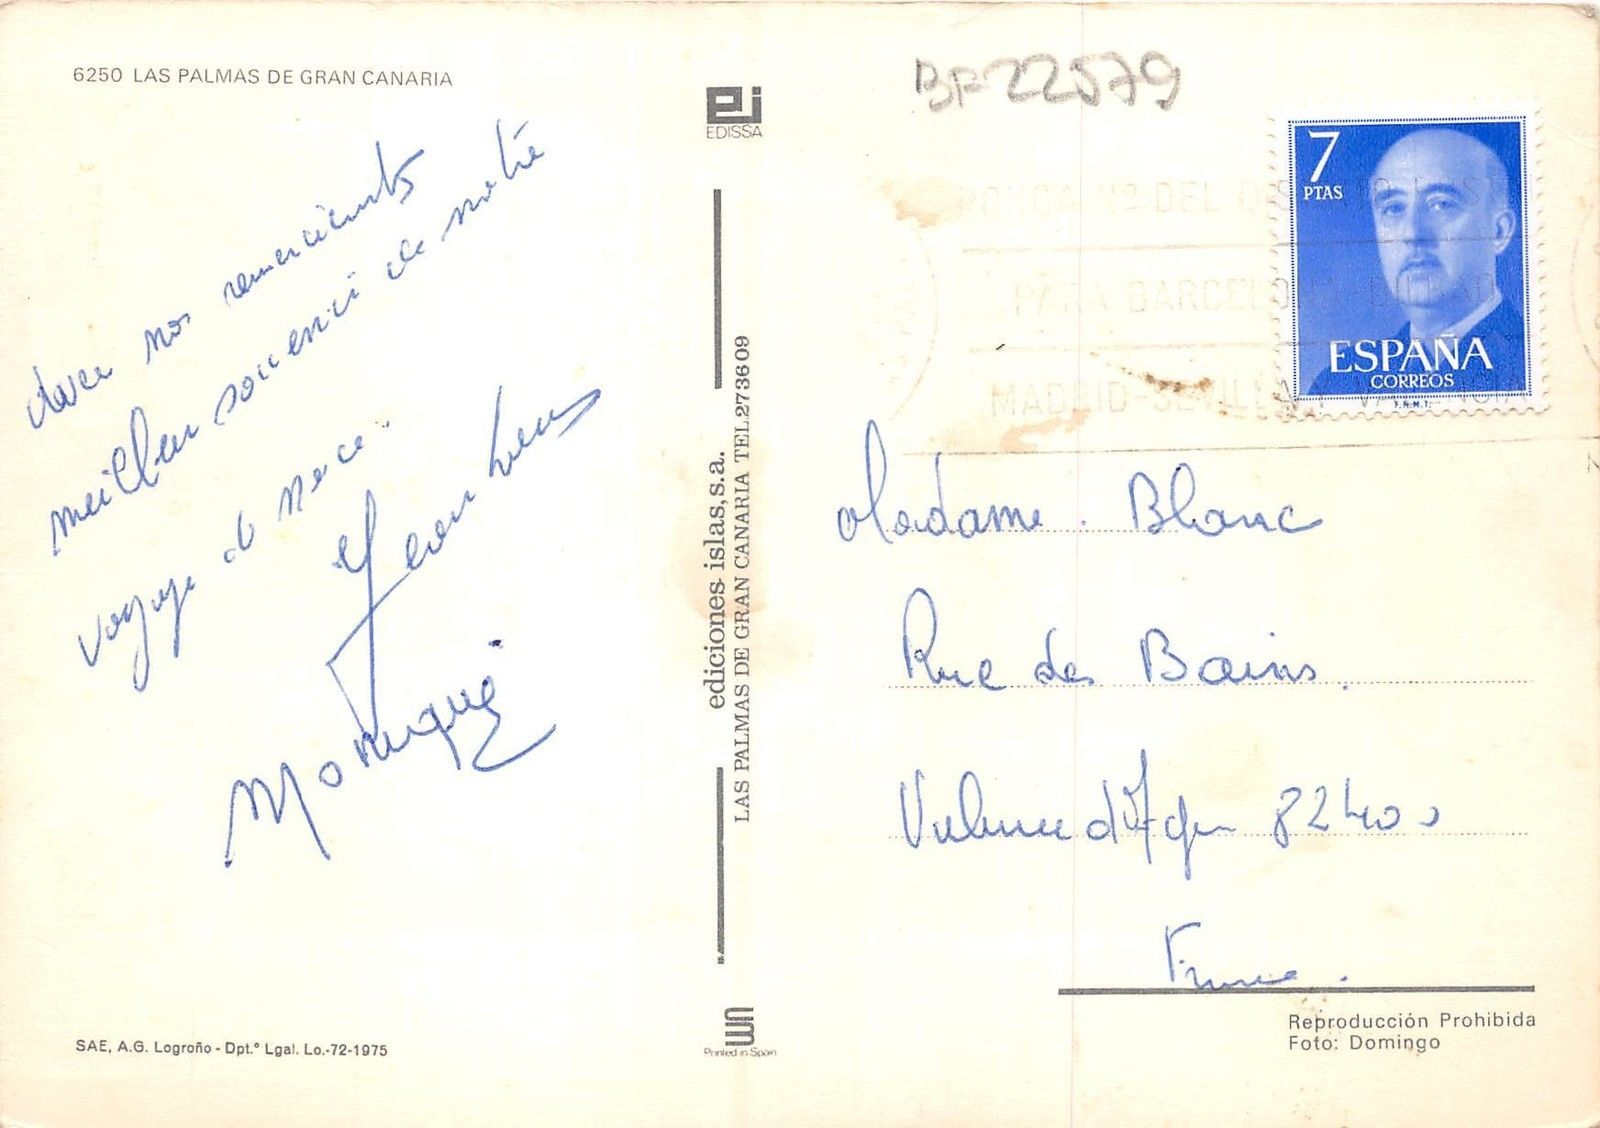 6250 LAS PALMAS DE GRAN CANARIA
avec nos remerciements
meilleur souvenir de notre
voyage de
Jean Louis
Monique
SAE, A.G. Logroño - Dpt.º Lgal. Lo.-72-1975
EDISSA
ediciones islas, s.a.
LAS PALMAS DE GRAN CANARIA TEL 273609
Printed in Spain
BF 22579
PONGA Nº DEL DISTRITO POSTAL
PARA BARCELONA-BILBAO
MADRID-SEVILLA Y VALENCIA
7
PTAS
ESPAÑA
CORREOS
F.N.M.T.
Madame Blanc
Rue des Bains.
Valence d'Agen 82400
France.
Reproducción Prohibida
Foto: Domingo